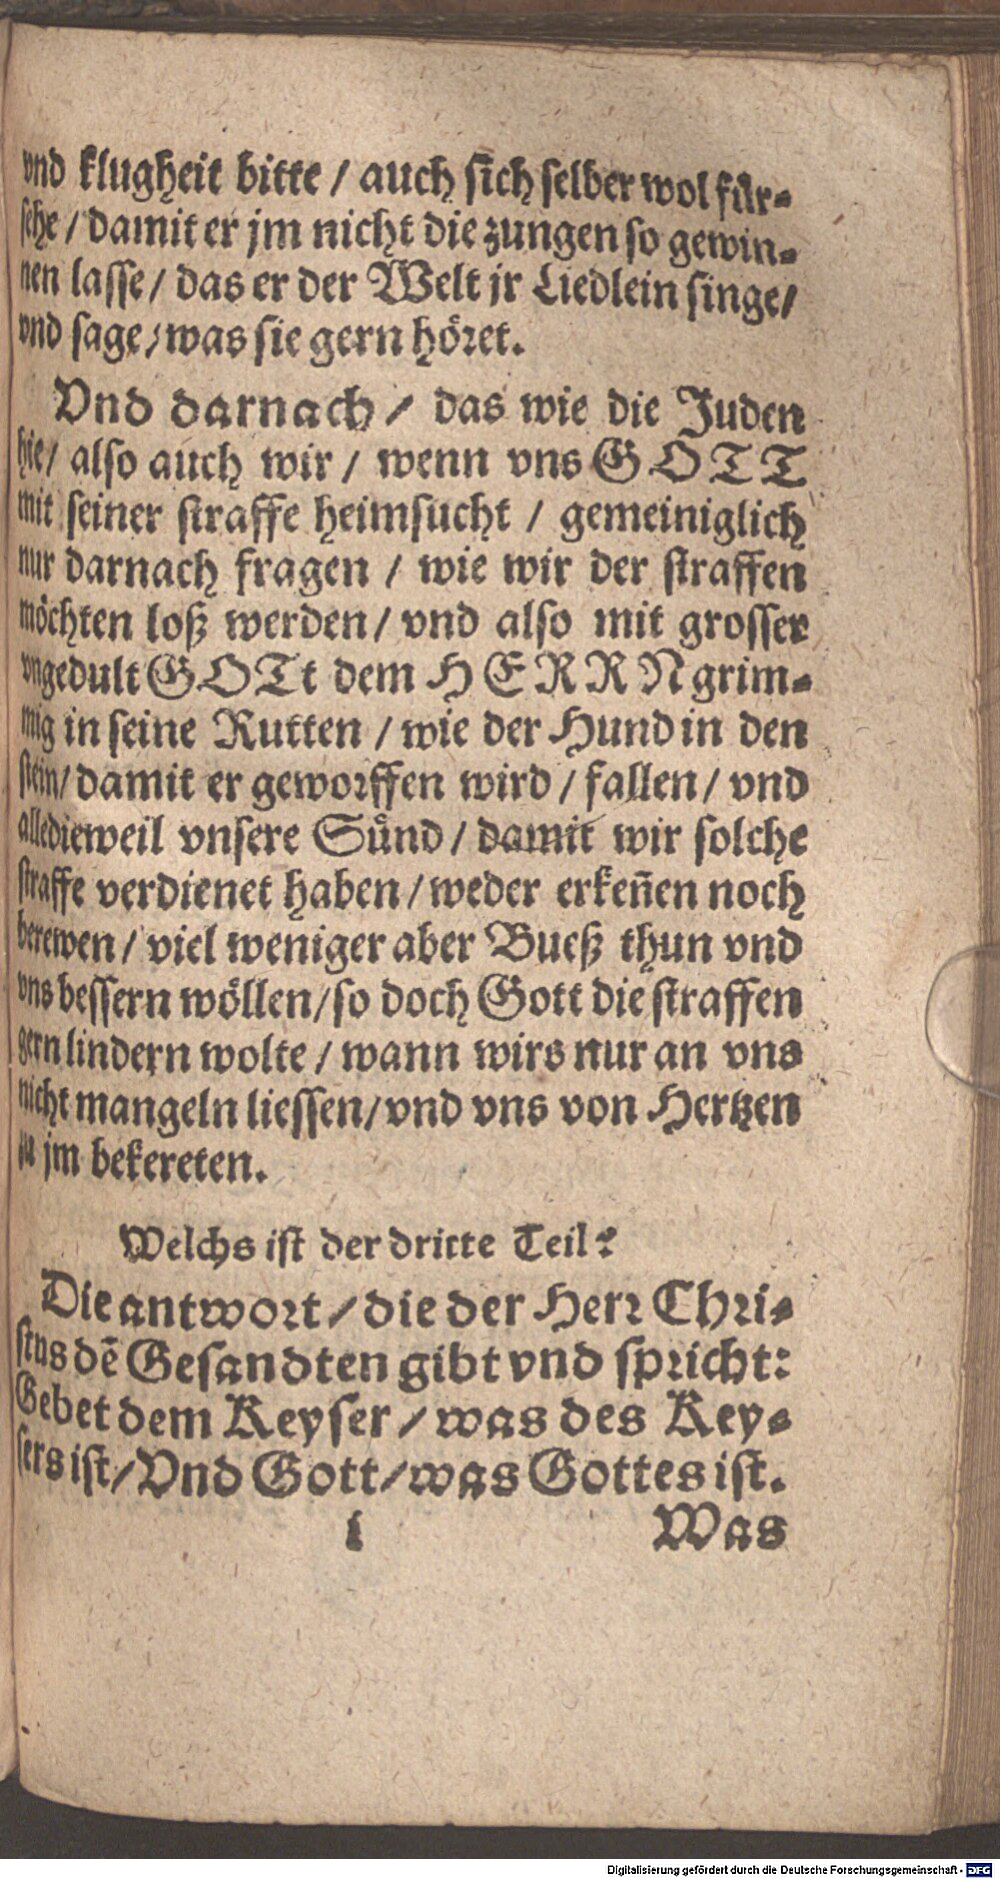 vnd klugheit bitte / auch sich selber wol für-
sehe / damit er jm nicht die zungen so gewin-
nen lasse / das er der Welt jr Liedlein singe /
vnd sage / was sie gern höret.
Vnd darnach / das wie die Juden
hie / also auch wir / wenn vns GOTT
mit seiner straffe heimsucht / gemeiniglich
nur darnach fragen / wie wir der straffen
möchten loß werden / vnd also mit grosser
vngedult GOTt dem HERRN grim-
mig in seine Rutten / wie der Hund in den
stein / damit er geworffen wird / fallen / vnd
alledieweil vnsere Sünd / damit wir solche
straffe verdienet haben / weder erkeñen noch
berewen / viel weniger aber Bueß thun vnd
vns bessern wöllen / so doch Gott die straffen
gern lindern wolte / wann wirs nur an vns
nicht mangeln liessen / vnd vns von Hertzen
zu jm bekereten.
Welchs ist der dritte Teil?
Die antwort / die der Herr Chri-
stus dē Gesandten gibt vnd spricht:
Gebet dem Keyser / was des Key-
sers ist / Vnd Gott / was Gottes ist.
i Was
Digitalisierung gefördert durch die Deutsche Forschungsgemeinschaft - DFG